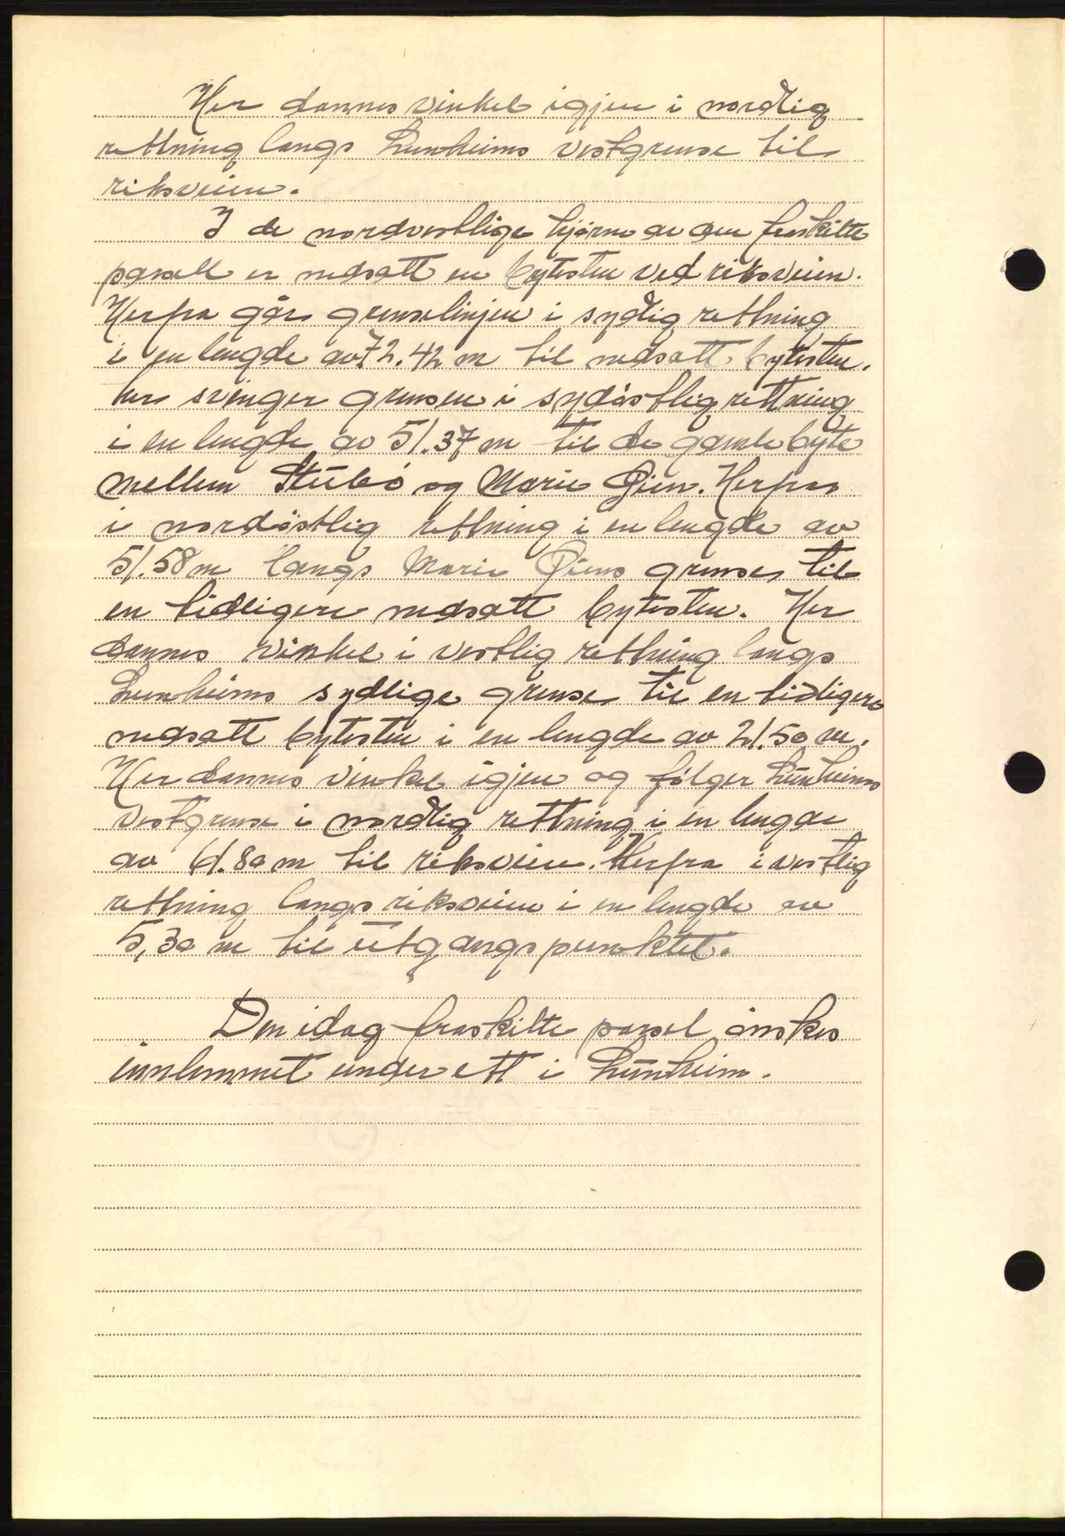 Her dannes vinkel igjen i nordlig
rettning langs Lunheims vestgrense til
riksveien.
I de nordvestlige hjørne av den fraskilte
parsell er nedsatt en bytesten ved riksveien.
Herfra går grenselinjen i sydlig rettning
i en lengde av 72.42 m til nedsatt bytesten.
her svinger grensen i sydöstlig rettning
i en lengde av 51.37 m til de gamle byte
mellem Stubö og Marie Öien. Herfra
i nordöstlig rettning i en lengde av
51.58 m langs Marie Öiens grense til
en tidligere nedsatt bytesten. Her
dannes vinkel i vestlig rettning langs
Lunheims sydlige grense til en tidligere
nedsatt bytesten i en lengde av 21.50 m.
Her dannes vinkel igjen og fölger Lunheims
vestgrense i nordlig rettning i en lengde
av 61.80 m til riksveien. Herfra i vestlig
rettning langs riksveien i en lengde av
5,30 m til utgangspunktet.
Den idag fraskilte parsel önskes
innlemmet under ett i Lunheim.